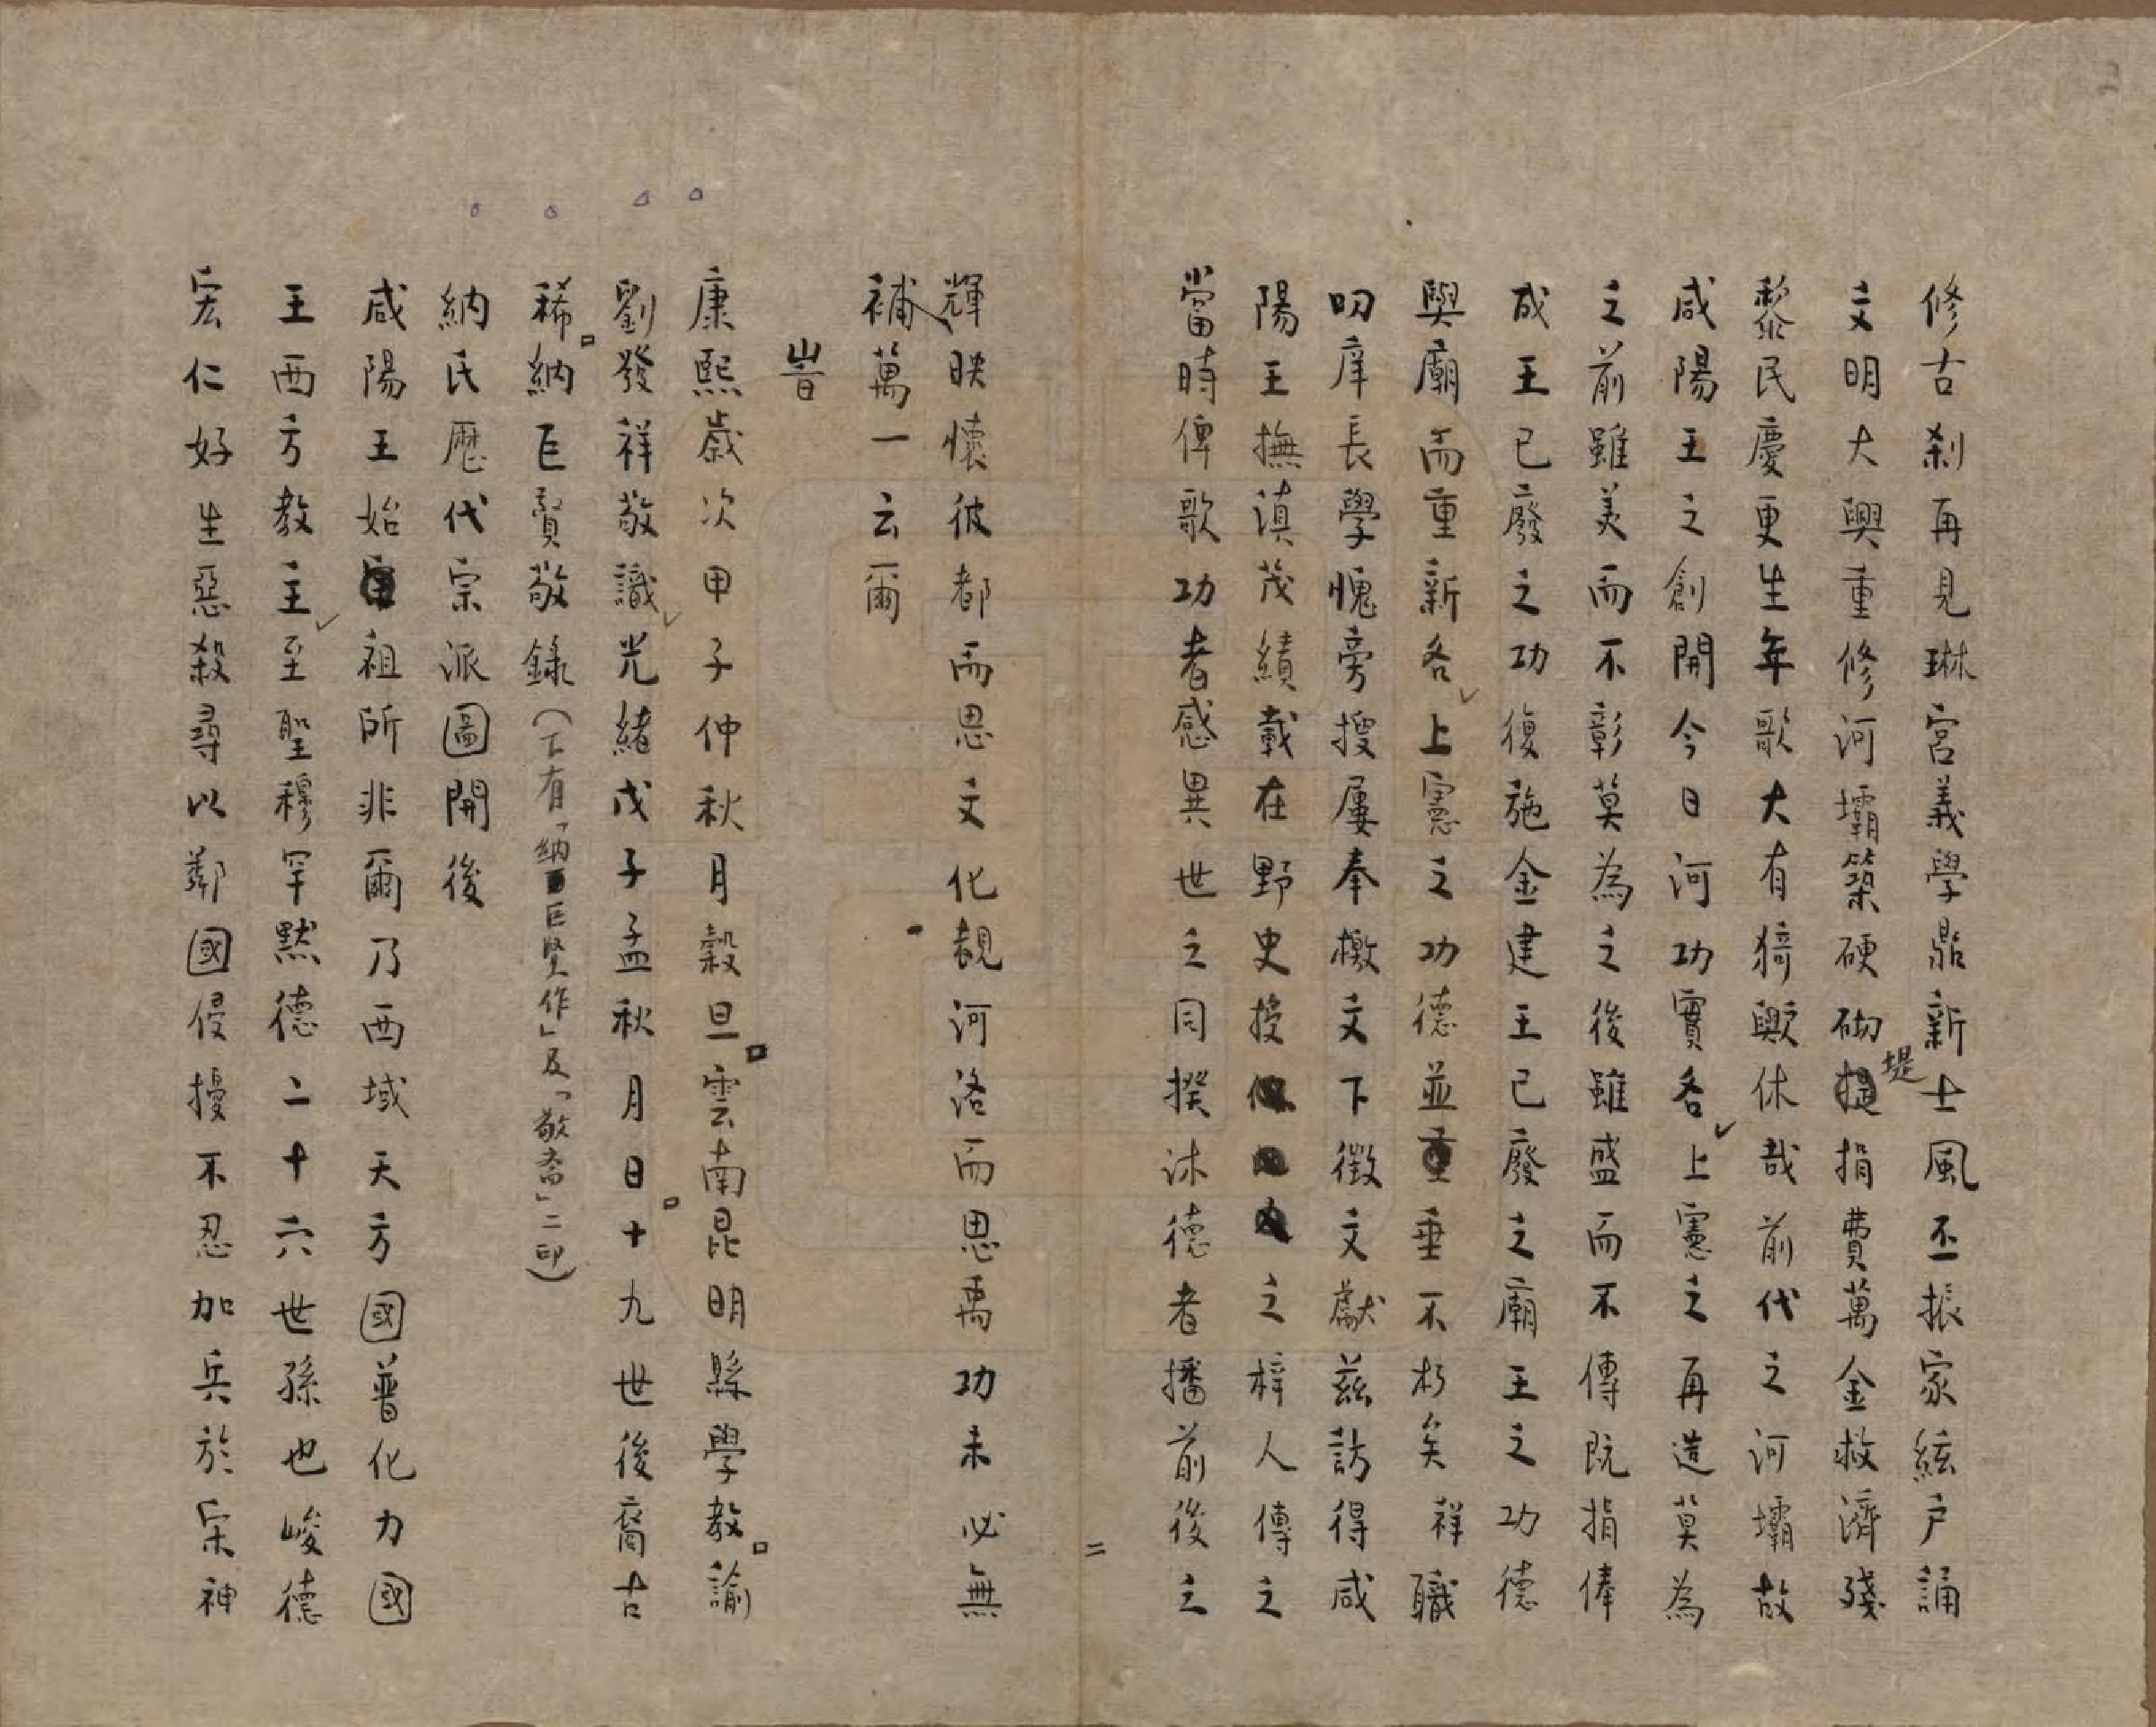 修古刹再見琳宮義學鼎新士風丕振家絃户誦
文明大興重修河壩築硬砌堤捐費萬金救濟殘
黎民慶更生年歌大有猗歟休哉前代之河壩故
咸陽王之創開今日河功實各上憲之再造莫為
之前雖美而不彰莫為之後雖盛而不傳既捐俸
成王已廢之功復施金建王已廢之廟王之功德
與廟而重新各上憲之功德並垂不朽矣祥職
叨庠長學愧旁搜屢奉檄文下徵文獻兹訪得咸
陽王撫滇茂績載在野史授之梓人傳之
當時俾歌功者感異世之同揆沐德者播前後之
輝映懷彼都而思文化覩河洛而思禹功未必無
補萬一云爾
旹
康熙歲次甲子仲秋月穀旦雲南昆明縣學教諭
劉發祥敬識光緒戊子孟秋月日十九世後裔古
稀納巨賢敬錄(下有「納巨賢作」及「敬斋」二印)
納氏歷代宗派圖開後
咸陽王始祖所非爾乃西域天方國普化力國
王西方教主至聖穆罕黙德二十六世孫也峻德
宏仁好生惡殺尋以鄰國侵擾不忍加兵於宋神
2